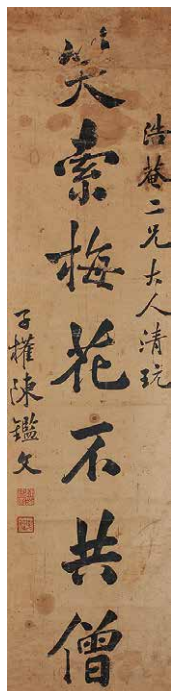 浩菴二兄大人清玩
笑索梅花不共僧
子權陳鑑文